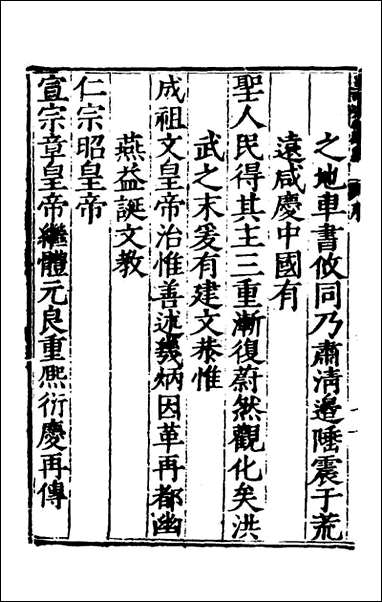 之地車書攸同乃肅清邉陲震于荒
遠咸慶中國有
聖人民得其主三重漸復蔚然觀化矣洪
武之末爰有建文恭惟
成祖文皇帝治惟善述幾炳因革再都幽
燕益誕文教
仁宗昭皇帝
宣宗章皇帝繼體元良重熙衍慶再傳